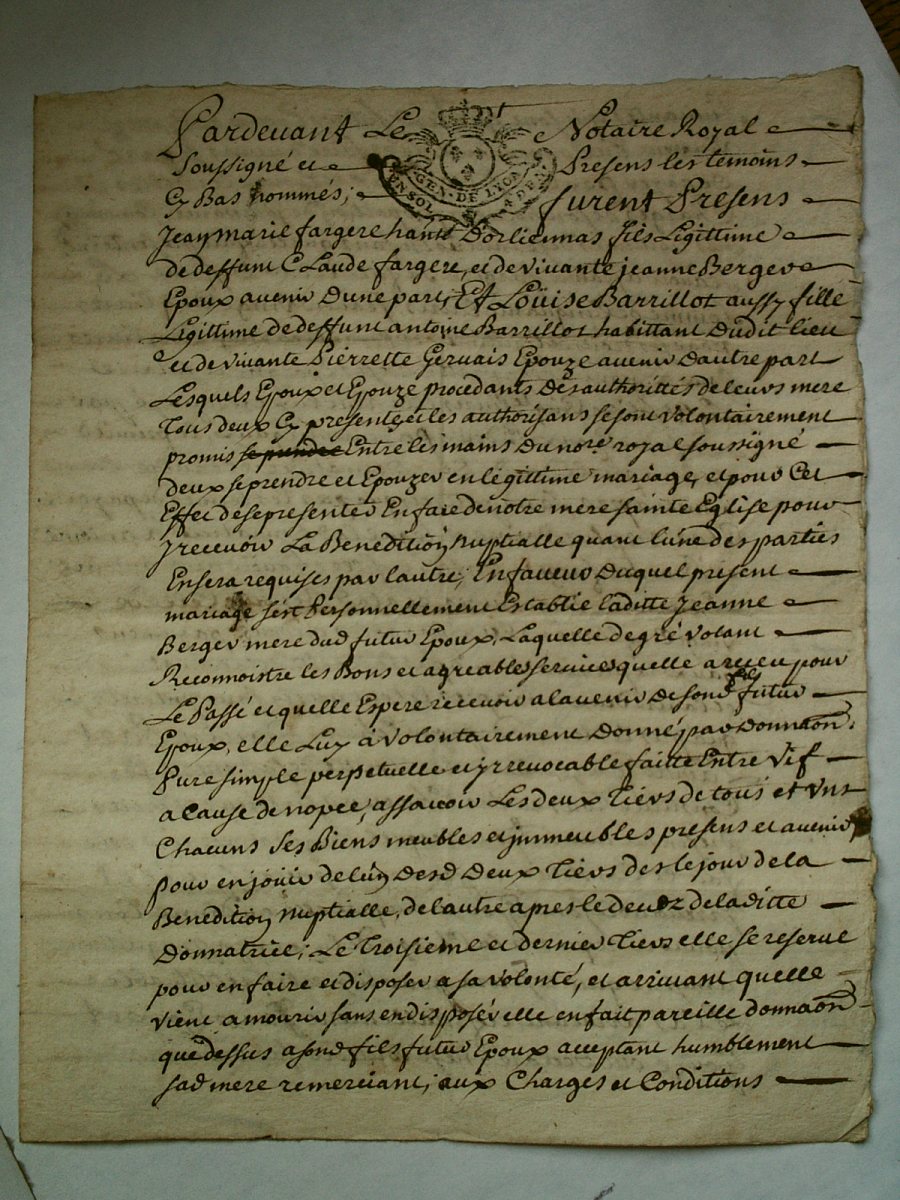 Pardevant Le Notaire Royal
Soussigné et Presens les temoins
Cy Bas nommés; furent Presens
Jean marie fargere hant D'orliennas fils Legittime
de deffunt Claude fargere, et de vivante jeanne Berger
Epoux avenir Dune part, Et Loüise Barrillot aussy fille
Legittime de deffunt antoine Barrillot habittant Dudit lieu
et de vivante Pierrette Gervais Epouze avenir Dautre part
Lesquels Epoux et Epouze procedants Des authorittés de leurs mere
tous deux Cy presente et les authorisans se sont volontairement
promis se prendre Entre les mains du nore. royal soussigné
deux se prendre et Epouzer en legittime mariage, et pour Cet
Effec de se presenter En face de notre mere sainte Eglise pour
y recevoir La Benedition nuptialle quant l'une des parties
En sera requises par lautre; En faveur Duquel present
mariage s'est Personnellement Establie laditte Jeanne
Berger mere dud futur Epoux, Laquelle de gré volant
Reconnoistre les Bons et agreables services quelle a receu pour
Le Passé et quelle Espere recevoir a lavenir de sond fils futur
Epoux, elle Luy à volontairement Donné par Donnaon
Pure simple perpetuelle et yrrevocable faitte Entre vif
a Cause de nopce, assavoir Les deux Tiers de tous et uns
Chacuns ses Biens meubles et jmmeubles presens et avenir
pour en joüir de l'un Desd Deux Tiers des le jour de la
Benedition nuptialle, de lautre apres le decez de laditte
Donnatrice; Le Troisieme et dernier Tiers elle se reserve
pour en faire et disposer a sa volonté, et arrivant quelle
vient a mourir sans en disposér elle en fait pareille donnaon
que dessus a sond fils futur Epoux acceptant humblement
sad mere remerciant; aux Charges et Conditions
GEN. DE LYON